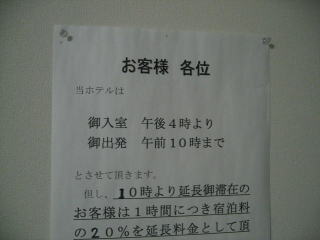 お客様 各位
当ホテルは
御入室 午後4時より
御出発 午前10時まで
とさせて頂きます。
但し、10時より延長御滞在の
お客様は1時間につき宿泊料
の20%を延長料金として頂